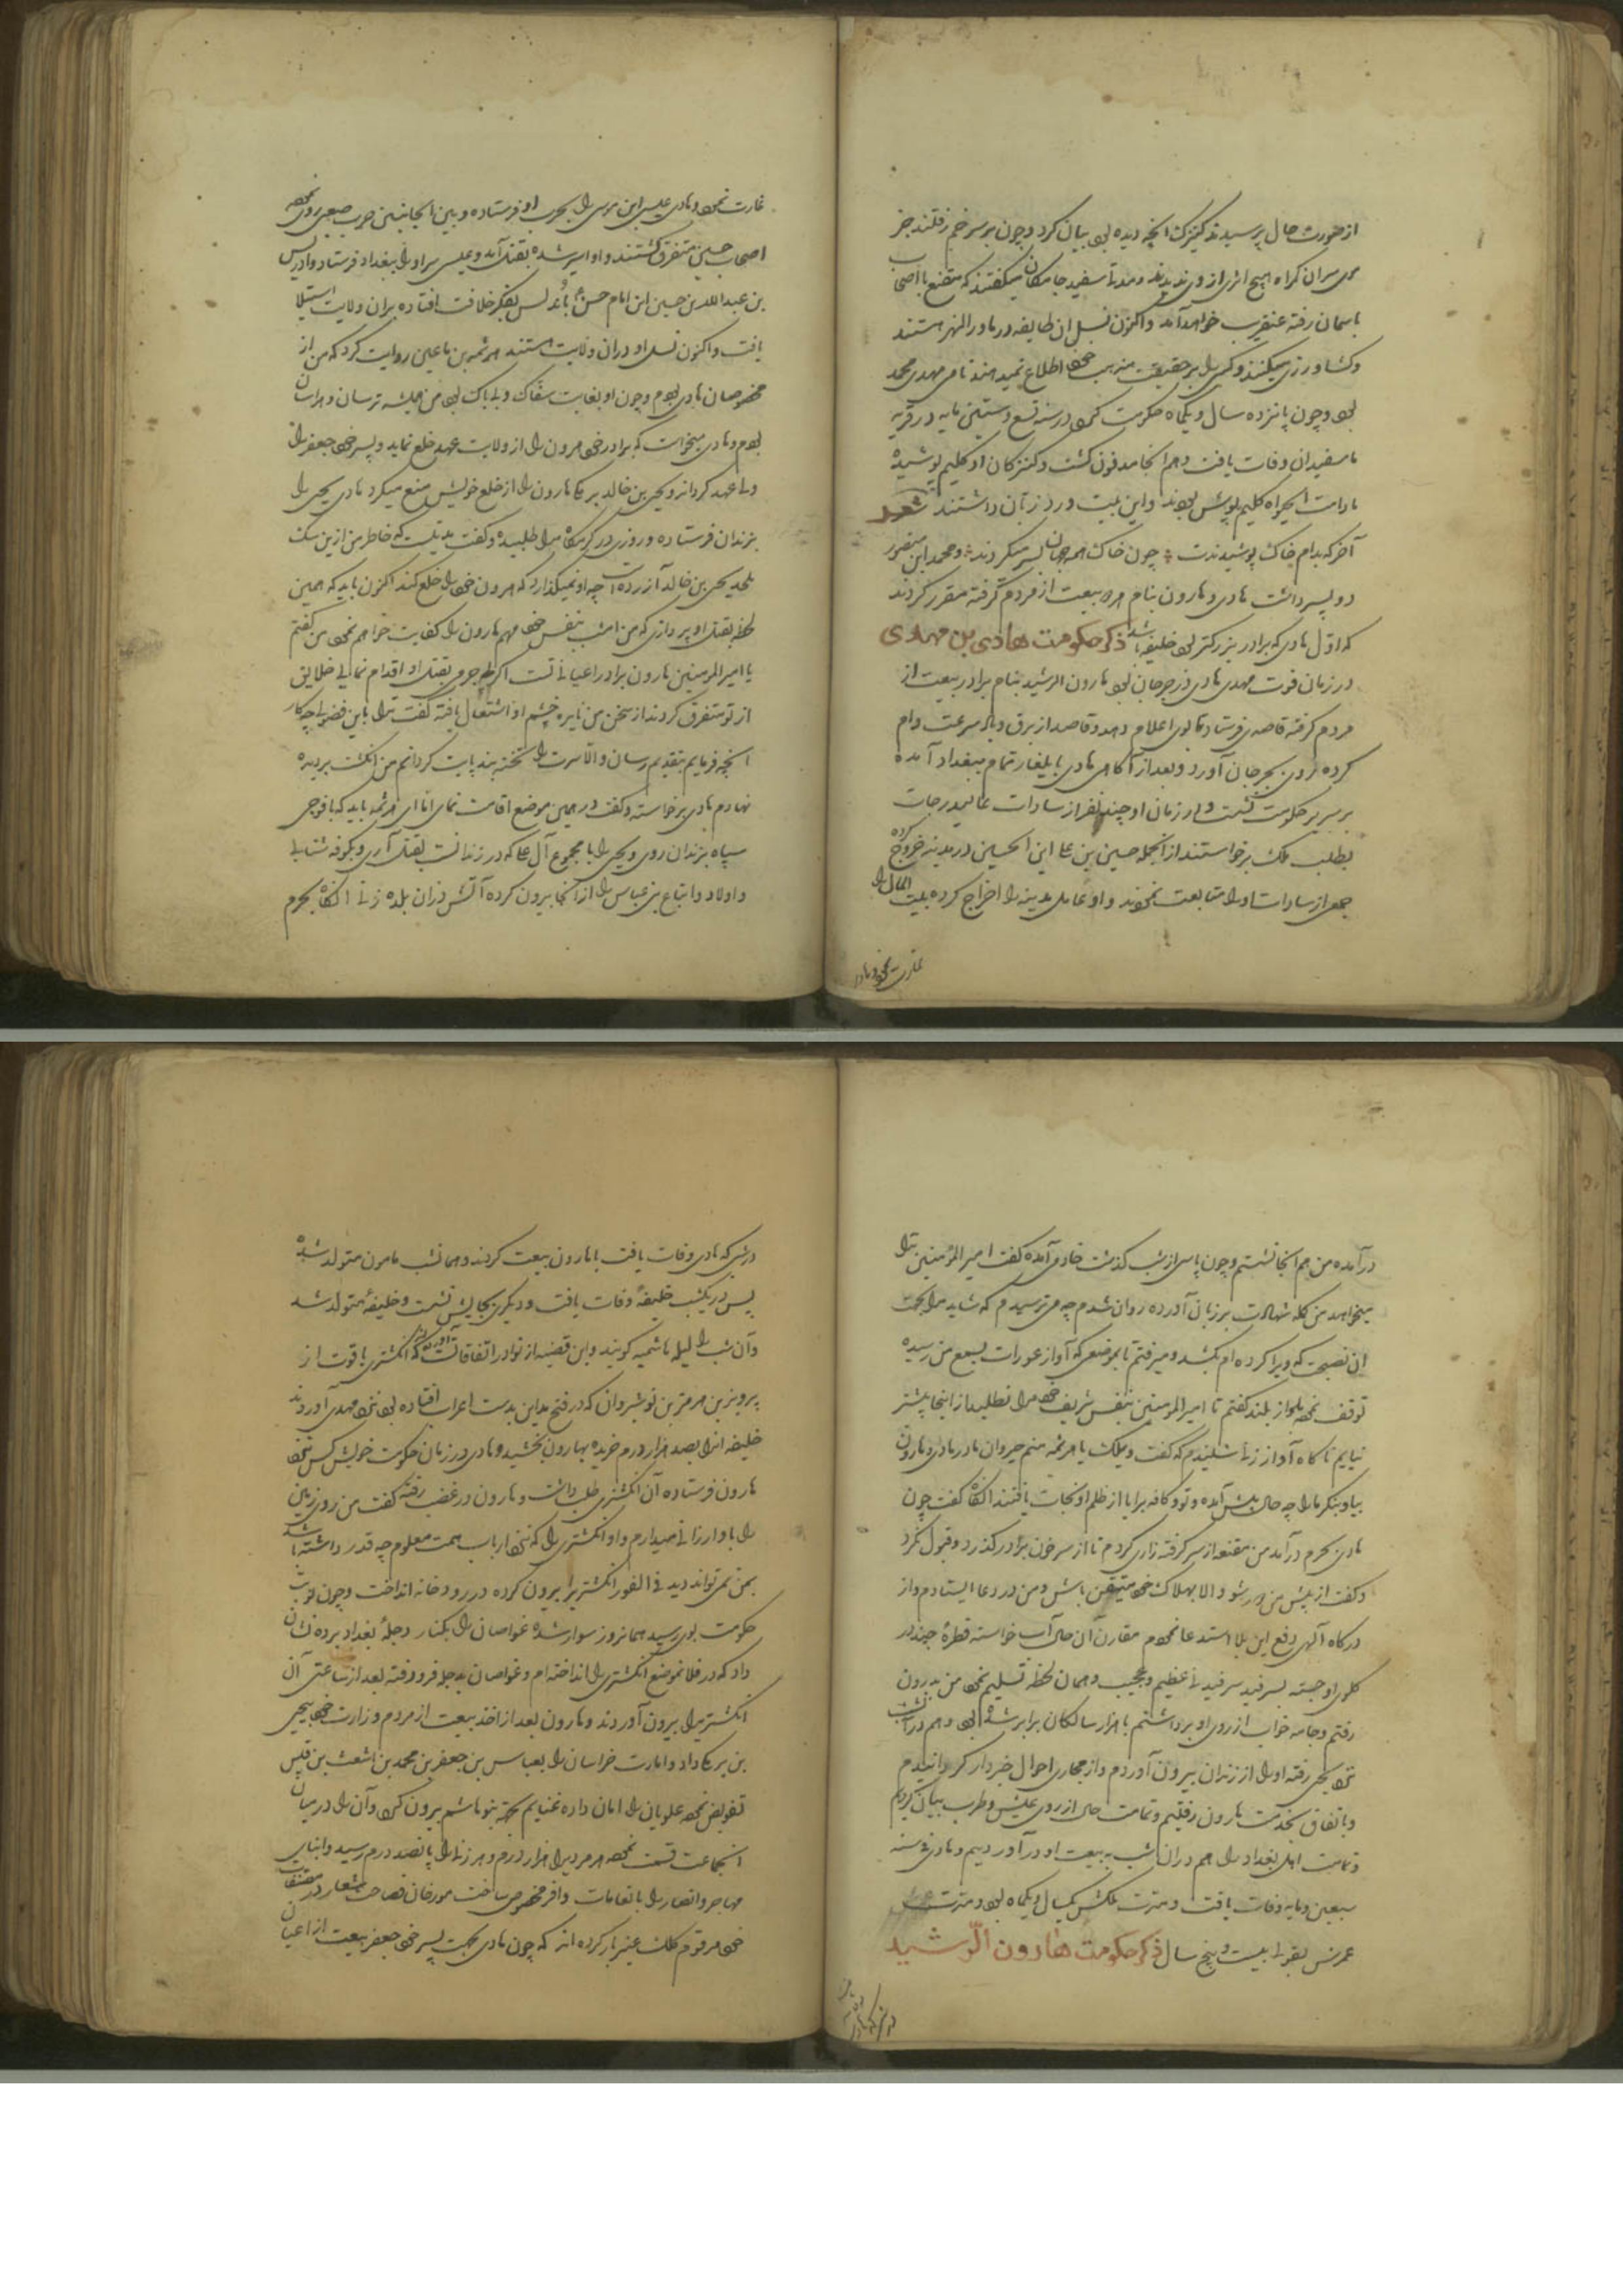 از صورت حال پرسیدند کنیزک آنچه دیده بود بیان کرد و چون بر سر خم رفتند جز
موی سر آن گمراه هیچ اثری از وی ندیدند و مدتها سفید جامکان میگفتند که مقنع با اصحاب
باسمان رفته عنقریب خواهد آمد و اکنون نسل ان طایفه در ماورالنهر هستند
و کشاورزی میکنند و کسی را بر حقیقت مذهب خود اطلاع نمیدهند نام مهدی محمد
بود و چون پانزده سال و یکماه حکومت کرد در سنه تسع و ستین مایه در قریه
ماسفیدان وفات یافت و هم انجا مدفون کشت و کنیزکان او کلیم پوشیده
مادامت الحیواه کلیم پوش بودند و این بیت ورد زبان داشتند شعر
آخر که بدام خاک پوشیدندت چون خاک همه جهان بسر میکردند و محمد ابن منصور
دو پسر داشت هادی و هارون بنام هر دو بیعت از مردم گرفته مقرر کردند
که اول هادی که برادر بزرکتر بود خلیفه باشد ذکر حکومت هادی بن مهدی
در زمان فوت مهدی هادی در جرجان بود هارون الرشید بنام برادر بیعت از
مردم کرفته قاصدی فرستاد تا بوی اعلام دهد و قاصد از برق و باد سرعت وام
کرده روی بجرجان آورد و بعد از آگاهی هادی بایلغار تمام ببغداد آمده
بر سریر حکومت نشست و در زمان او چند نفر از سادات عالیدرجات
بطلب ملک برخواستند از انجمله حسین بن علی ابن الحسین در مدینه خروج کرده
جمعی از سادات او را متابعت نمودند و او عامل مدینه را اخراج کرده بیت المال را
غارت نمود و هادی
غارت نمود و هادی عیسی ابن موسی را بحرب او فرستاده و بین الجانبین حرب صعب روی نموده
اصحاب حسین متفرق کشتند و او اسیر شده بقتل آمد و عیسی سر او را ببغداد فرستاد و ادریس
بن عبدالله بن حسین ابن امام حسن باندلس بفکر خلافت افتاده بران ولایت استیلا
یافت و اکنون نسل او دران ولایت هستند هرثمه بن اعین روایت کرد که من از
مخصوصان هادی بودم و چون او بغایت سفاک و بی باک بود من همیشه ترسان و هراسان
بودم و هادی میخواست که برادر خود هرون را از ولایت عهد خلع نماید و پسر خود جعفر را
ولی عهد کرداند و یحیی بن خالد برمکی هارون را از خلع خویش منع میکرد هادی یحیی را
بزندان فرستاده و روزی در کرمگاه مرا طلبیده و کفت مدتیست که خاطر من ازین سک
ملحد یحیی بن خالد آزرده است چه او نمیکذارد که هرون خود را خلع کند اکنون باید که همین
لحظه بقتل او پردازی که من امشب بنفس خود مهم هارون را کفایت خواهم نمود من کفتم
یا امیرالمومنین هارون برادر اعیانی تست اگر بی جرم بقتل او اقدام نمایی خلایق
از تو متفرق کردند از سخن من نایره خشم او اشتعال یافته گفت ترا باین فضولی چه کار
انچه فرمایم بتقدیم رسان والا سرت را تخته بند پایت کردانم من انکشت بردیده
نهادم هادی برخواسته و کفت در همین موضع اقامت نمای اما ای هرثمه باید که با فوجی
سپاه بزندان روی و یحیی را با مجموع آل علی که در زندانست بقتل آری و بکوفه شتابی
و اولاد و اتباع بنی عباس را از انجا بیرون کرده آتش دران بلده زنی انگاه بحرم
درآمده من هم انجا نشستم و چون پاسی از شب کذشت خادمی آمده گفت امیر المومنین ترا
میخواهد من کلمه شهادت بر زبان آورده روان شدم چه می ترسیدم که شاید مرا بجهت
ان نصیحت که ویرا کرده ام بکشد و میرفتم تا بموضعی که آواز عورات بسمع من رسیده
توقف نموده باواز بلند کفتم تا امیر المومنین بنفس شریف خود مرا نطلبد از اینجا پیشتر
نیایم ناکاه آواز زنی شنیدم که گفت ویلک یا هرثمه منم خیزران مادر هادی و هارون
بیا و بنکر ما را چه حال پیش آمده و تو و کافه برایا از ظلم او نجات یافتند انگاه گفت چون
هادی بحرم درآمد من مقنعه از سر گرفته زاری کردم تا از سر خون برادر گذرد و قبول نکرد
و کفت از پیش من دور شو والا بهلاک خود متیقن باش و من در دعا ایستادم و از
درکاه آلهی دفع این بلا استدعا نمودم مقارن آن حال آب خواسته قطرهٔ چند در
کلوی او جسته بسرفید سرفیدنی عظیم و عجیب و همان لحظه تسلیم نمود من بدرون
رفتم و جامه خواب از روی او برداشتم با هزار سالگان برابر شده بود و هم در آنشب
نزد یحیی رفته او را از زندان بیرون آوردم و از مجاری احوال خبردار کردانیدم
و باتفاق بخدمت هارون رفتیم و تمامت حال از روی عیش و طرب بیان کردیم
و تمامت اهل بغداد را هم دران شب به بیعت او درآوردیم و هادی در سنه
سبعین و مایه وفات یافت و مدت ملکش یکسال و یکماه بود و مدت
عمرش بقولی بیست و پنج سال ذکر حکومت هارون الرشید
در شبی که هادی
در شبی که هادی وفات یافت با هارون بیعت کردند و همانشب مامون متولد شده
پس در یکشب خلیفهٔ وفات یافت و دیگری بجایش نشست و خلیفهٔ متولد شد
و آن شب را لیله هاشمیه کویند و این قضیه از نوادر اتفاقاتست آورده اند که انکشتری یاقوت از
پرویز بن هرمز بن نوشیروان که در فتح مداین بدست اعراب افتاده بود نزد مهدی آوردند
خلیفه انرا بصد هزار درم خریده بهارون بخشید و هادی در زمان حکومت خویش کس نزد
هارون فرستاده آن انکشتری طلب داشت و هارون در غضب رفته گفت من روی زمین
را باو ارزانی میدارم و او انکشتری را که نزد ارباب همت معلوم چه قدر داشته باشد
بمن نمی تواند دید فی الفور انکشتری را بیرون کرده در رودخانه انداخت و چون نوبت
حکومت بوی رسید همانروز سوار شده غواصان را بکنار دجلهٔ بغداد برده نشان
داد که در فلانموضع انکشتری را انداخته ام و غواصان بدجله فرو رفته بعد از ساعتی آن
انکشتری را بیرون آوردند و هارون بعد از اخذ بیعت از مردم وزارت خود بیحیی
بن برمک داد و امارت خراسان را بعباس بن جعفر بن محمد بن اشعث بن قیس
تفویض نموده علویان را امان داده غنایم بجهة بنو هاشم بیرون کرد و آن را در میان
انجماعت قسمت نموده هر مردیرا هزار درم و هر زنی را پانصد درم رسید و ابنای
مهاجر و انصار را بانعامات وافر مخصوص ساخت مورخان فصاحت شعار در مصنفات
خود مرقوم کلک عنبر بار کرده اند که چون هادی بجهت پسر خود جعفر بیعت از اعیان